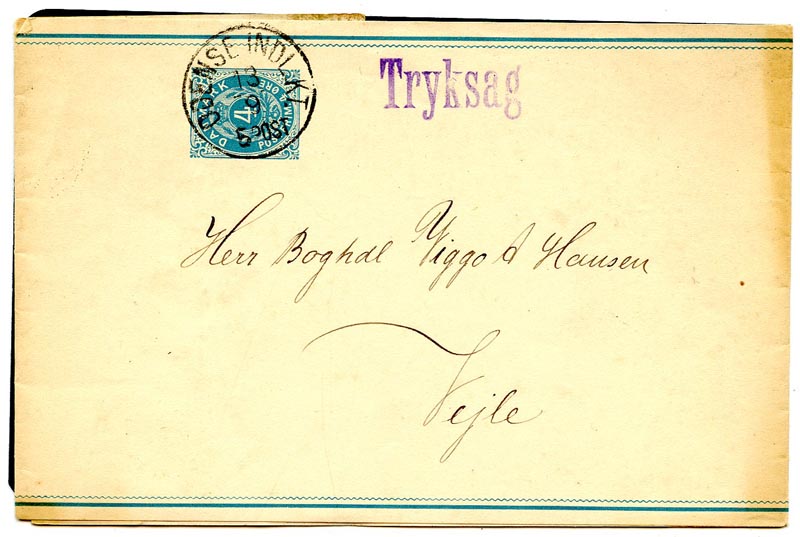 ODENSE INDL. KT
13
9
5 POST
DANMARK
4
POSTFRIM
ØRE
Tryksag
Herr Boghdl Viggo A Hansen
Vejle